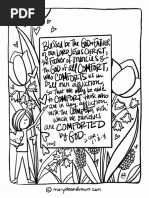 Blessed be the God & Father
of our LORD, Jesus CHRIST,
the Father of mercies &
the God of all COMFORT,
who COMFORTS us in
all our affliction,
so that we may be able
to COMFORT those who
are in any affliction,
with the COMFORT with
which we ourselves
are COMFORTED
by God.
marydeandraws.com